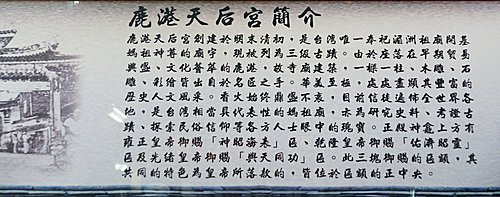 鹿港天后宮簡介
鹿港天后宮創建於明末清初，是台灣唯一奉祀湄洲祖廟開基
媽祖神尊的廟宇，現被列為三級古蹟。由於座落在早期貿易
興盛、文化薈萃的鹿港，故寺廟建築，一樑一柱、木雕、石
雕、彩繪皆出自於名匠之手。華美至極，處處蘊
豐富的
歷史人文風采。香火始終鼎盛不衰，目前信徒遍佈全世界各
地，是台灣相當具代表性的媽祖廟，亦為研究史料、考證古
蹟、探索民俗信仰等各方人士眼中的瑰寶。正殿神龕上方有
雍正皇帝御賜「神昭海表」匾、乾隆皇帝御賜「佑濟昭靈」
匾及光緒皇帝御賜「與天同功」匾。此三塊御賜的匾額，其
共同的特色為皇帝所落款的，皆位於匾額的正中央。